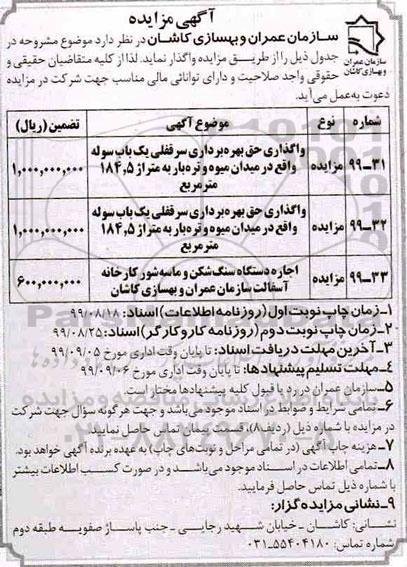 آگهی مزایده
سازمان عمران و بهسازی کاشان در نظر دارد موضوع مشروحه در
جدول ذیل را از طریق مزایده واگذار نماید. لذا از کلیه متقاضیان حقیقی و
حقوقی واجد صلاحیت و دارای توانائی مالی مناسب جهت شرکت در مزایده
دعوت به‌عمل می‌آید.
سازمان عمران
و بهسازی کاشان
شماره نوع موضوع آگهی تضمین (ریال)
۹۹-۳۱ مزایده واگذاری حق بهره‌برداری سرقفلی یک باب سوله واقع در میدان میوه و تره‌بار به متراژ ۱۸۴٫۵ مترمربع ۱,۰۰۰,۰۰۰,۰۰۰
۹۹-۳۲ مزایده واگذاری حق بهره‌برداری سرقفلی یک باب سوله واقع در میدان میوه و تره‌بار به متراژ ۱۸۴٫۵ مترمربع ۱,۰۰۰,۰۰۰,۰۰۰
۹۹-۳۳ مزایده اجاره دستگاه سنگ‌شکن و ماسه‌شور کارخانه آسفالت سازمان عمران و بهسازی کاشان ۶۰۰,۰۰۰,۰۰۰
۱-زمان چاپ نوبت اول (روزنامه اطلاعات) اسناد: ۹۹/۰۸/۱۸
۲-زمان چاپ نوبت دوم (روزنامه کار و کارگر) اسناد: ۹۹/۰۸/۲۵
۳-آخرین مهلت دریافت اسناد: تا پایان وقت اداری مورخ ۹۹/۰۹/۰۵
۴-مهلت تسلیم پیشنهادها: تا پایان وقت اداری مورخ ۹۹/۰۹/۰۶
۵-سازمان عمران در رد یا قبول کلیه پیشنهادها مختار است.
۶-تمامی شرایط و ضوابط در اسناد موجود می‌باشد و جهت هر گونه سؤال جهت شرکت
در مزایده با شماره ذیل (ردیف۸)، قسمت پیمان تماس حاصل نمایند.
۷-هزینه چاپ آگهی (در تمامی مراحل و نوبت‌های چاپ) به عهده برنده آگهی خواهد بود.
۸-تمامی اطلاعات در اسناد موجود می‌باشد و در صورت کسب اطلاعات بیشتر
با شماره ذیل تماس حاصل فرمایید.
۹-نشانی مزایده‌گزار:
نشانی: کاشان - خیابان شهید رجایی - جنب پاساژ صفویه طبقه دوم
شماره تماس: ۵۵۴۰۴۱۸۰-۰۳۱